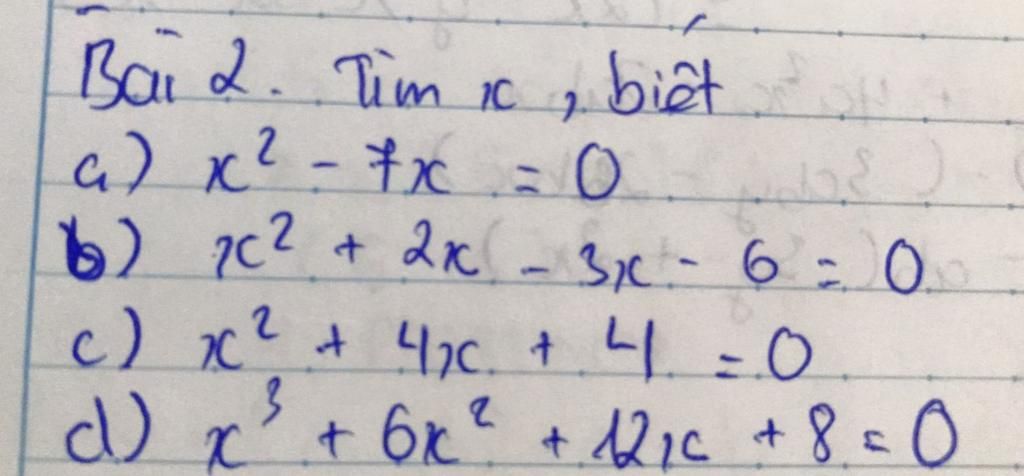 Bài 2. Tìm x, biết
a) x² - 7x = 0
b) x² + 2x - 3x - 6 = 0
c) x² + 4x + 4 = 0
d) x³ + 6x² + 12x + 8 = 0